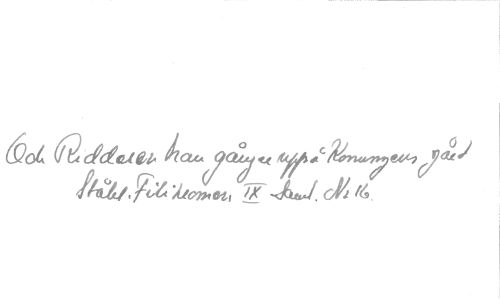 Och Riddaren han gånger uppå Konungens gård
Ståhl. Filikromen IX Saml. No 16.